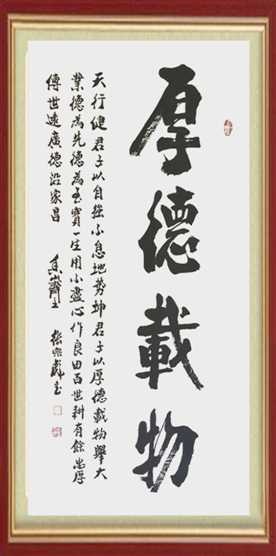 厚德載物
天行健君子以自强不息地势坤君子以厚德載物舉大
業德為先德為至寶一生用不盡心作良田百世耕有餘忠厚
傳世遠廣德沿家昌